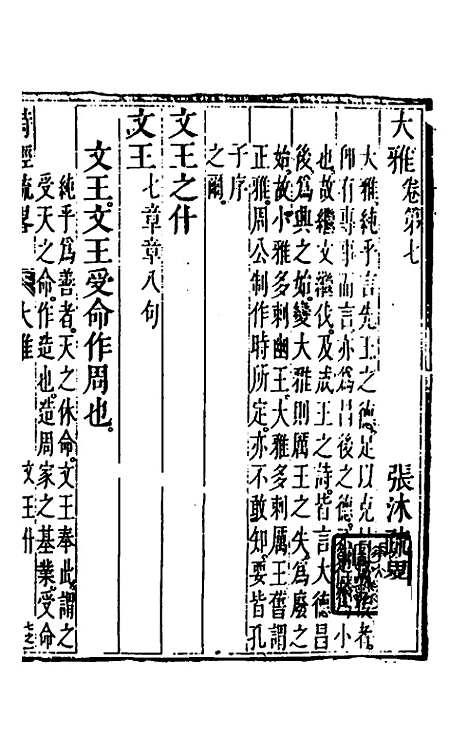 大雅卷第七　張沐疏畧
大雅純乎言先王之德足以克者
仰有專事而言亦爲昌後之德小
也故繼文繼伐及武王之詩皆言大德昌
後爲興之始變大雅則厲王之失爲廢之
始故小雅多刺幽王大雅多刺厲王舊謂
正雅周公制作時所定亦不敢知要皆孔
子序
之爾
文王之什
文王七章章八句
文王文王受命作周也
純乎爲善者天之休命文王奉此謂之
受天之命作造也造周家之基業受命
詩經疏畧　大雅　文王什